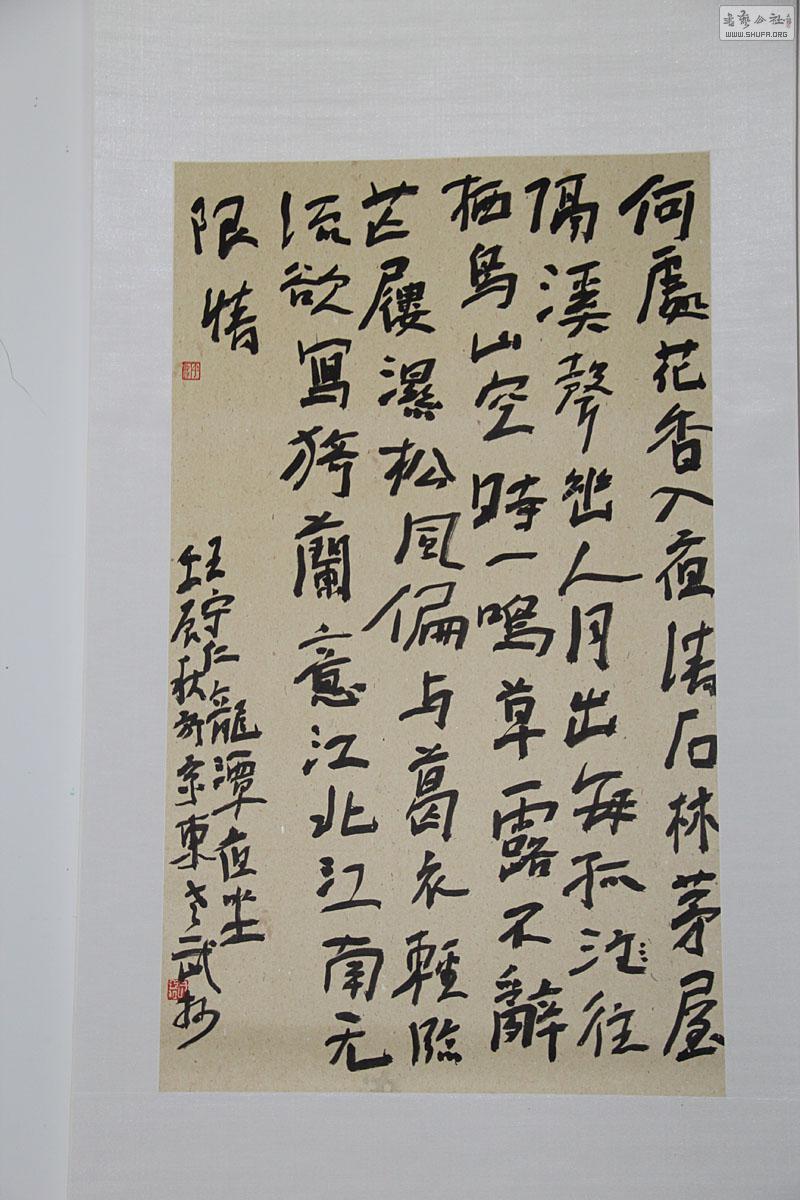 何處花香入夜清石林茅屋
隔溪聲幽人月出每孤注往
栖鳥山空時一鳴草露不辭
芒屨濕松風偏与葛衣輕臨
流欲寫猗蘭意江北江南无
限情
王守仁龍潭夜坐
壬辰秋於京東
書藝公社
WWW.SHUFA.ORG